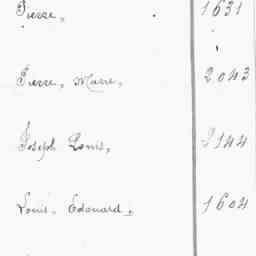 Pierre, 1631
Pierre, Marie, 2043
Joseph Louis, 2144
Louis, Edouard, 1604